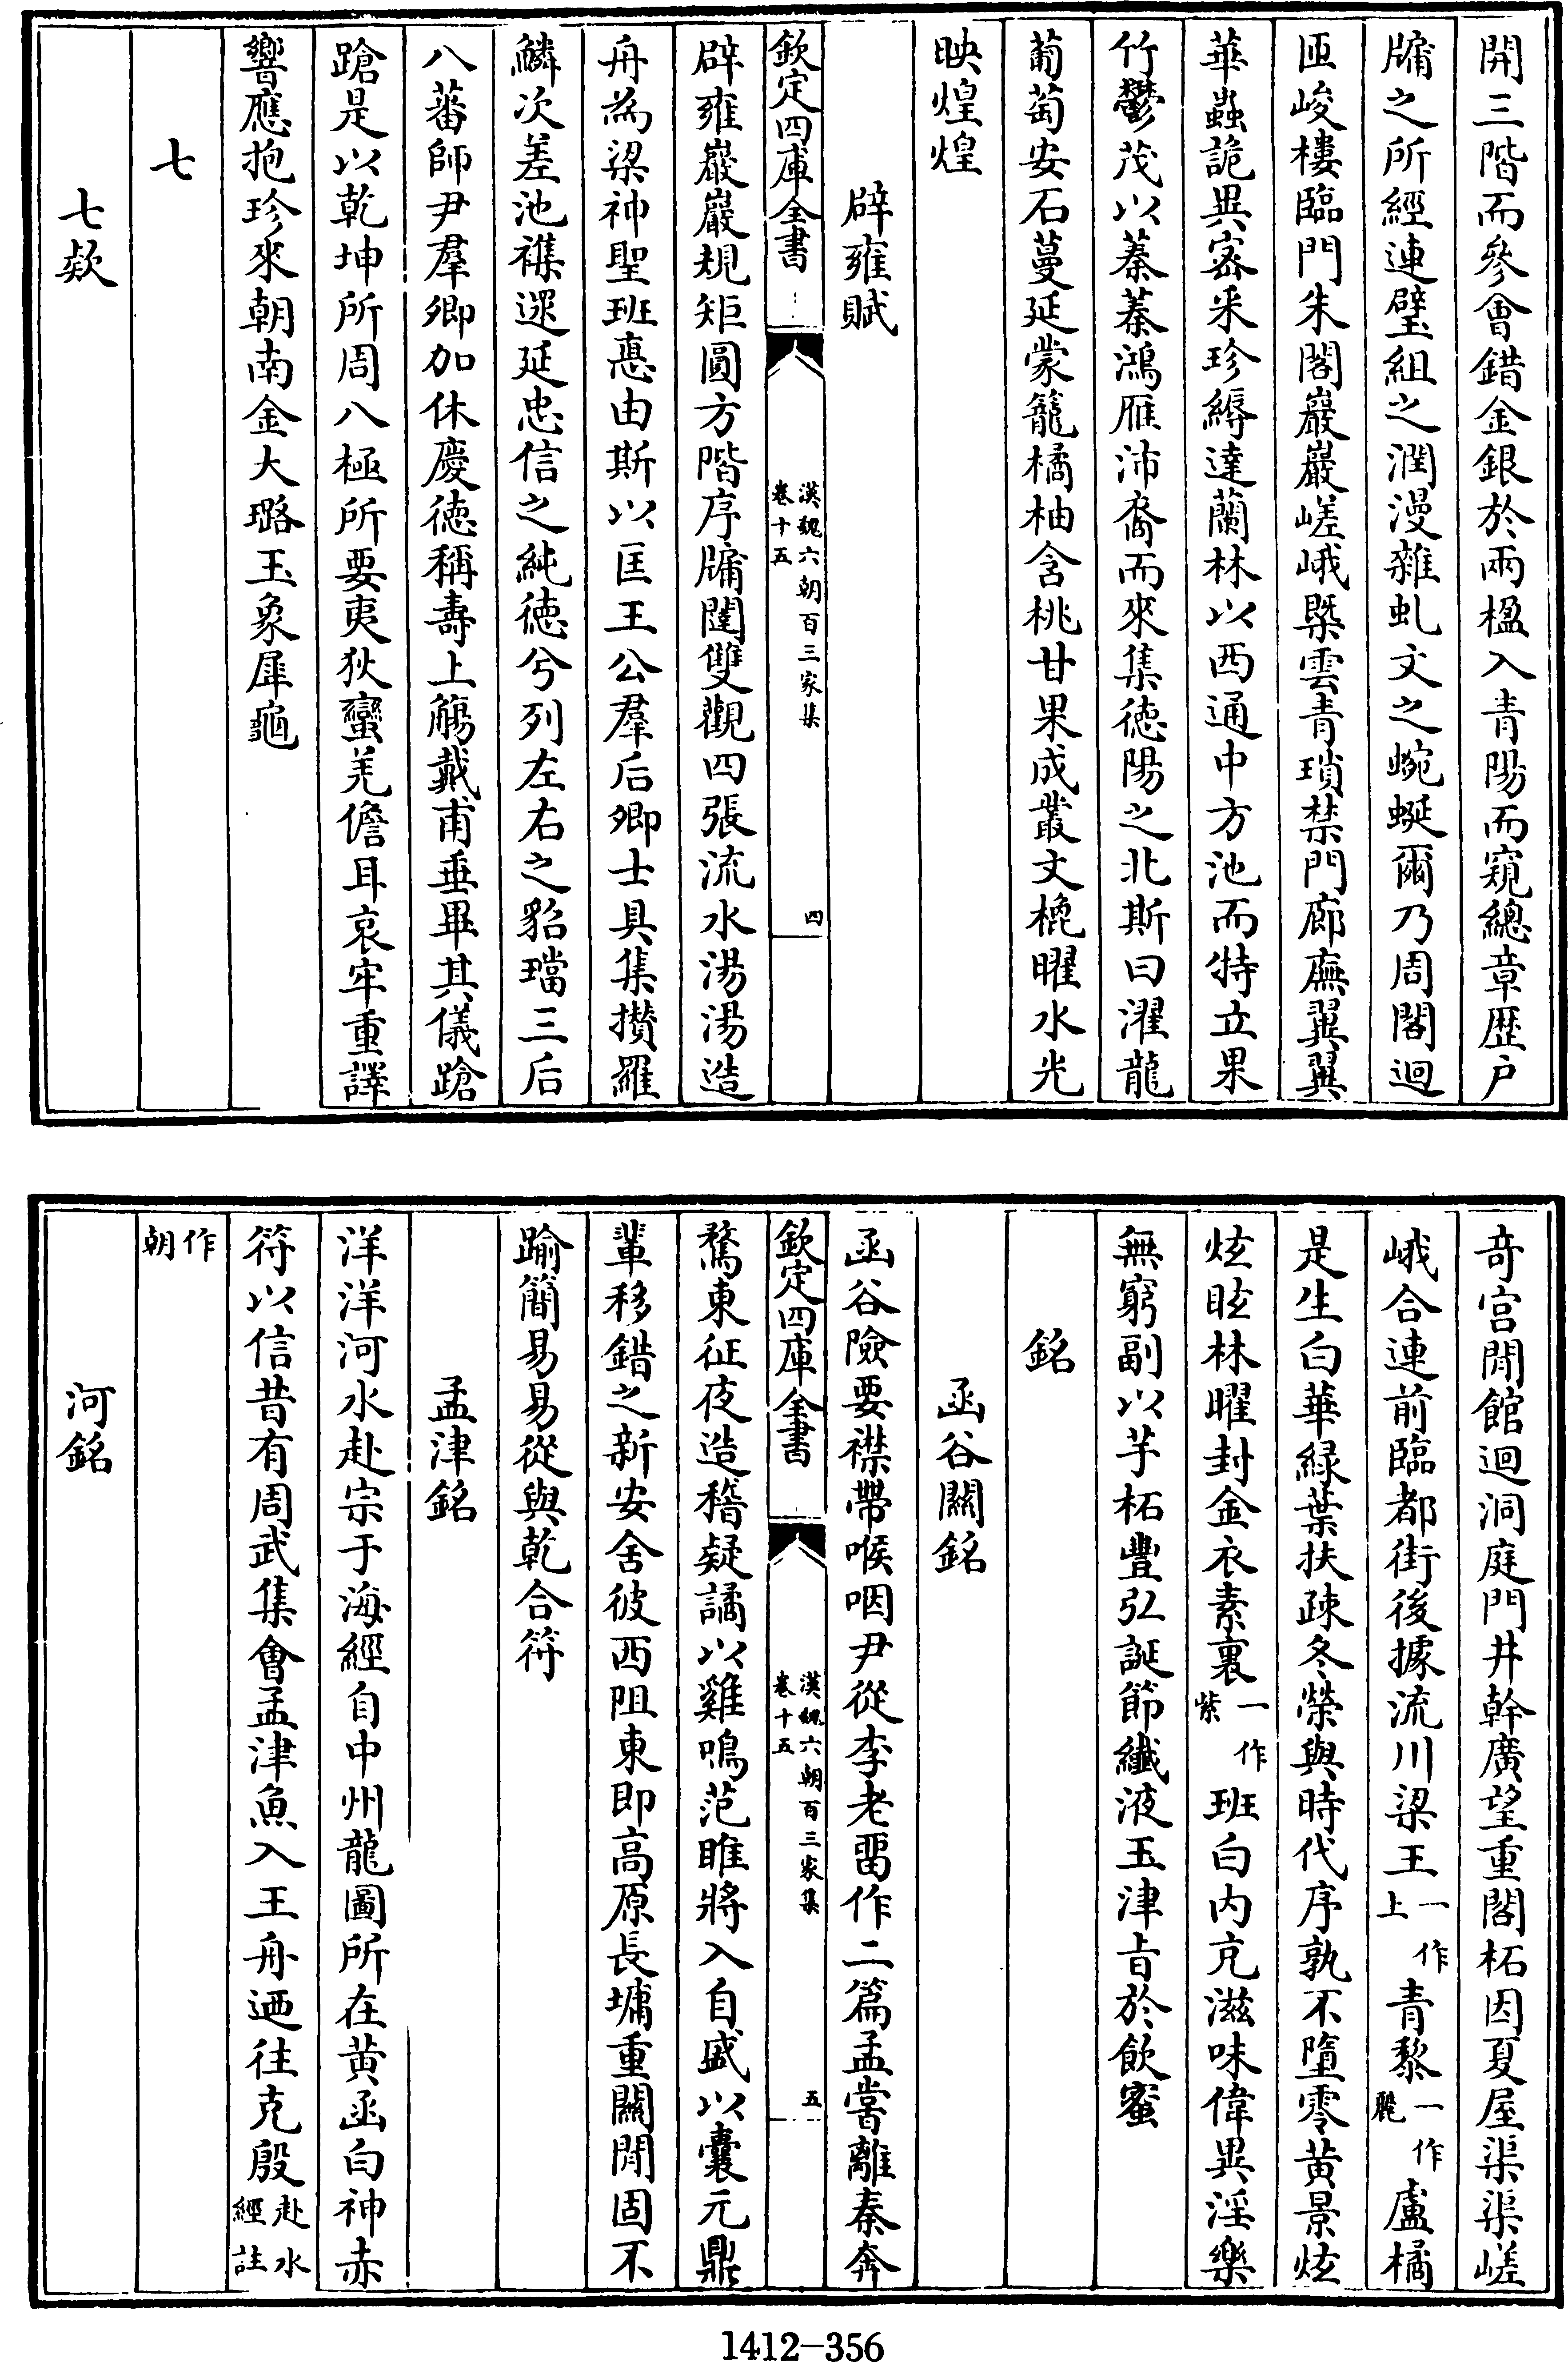 開三階而參會錯金銀於兩楹入青陽而窺總章歴户
牖之所經連璧組之潤漫雜虬文之蜿蜒爾乃周閣迴
匝峻樓臨門朱闕巖巖嵯峨槩雲青瑣禁門廊廡翼翼
華蟲詭異宻采珍縟達蘭林以西通中方池而特立果
竹鬱茂以蓁蓁鴻雁沛裔而來集徳陽之北斯曰濯龍
葡萄安石蔓延蒙籠橘柚含桃甘果成叢文槐曜水光
映煌煌
辟雍賦
欽定四庫全書
漢魏六朝百三家集
卷十五
四
辟雍巖巖規矩圓方階序牖闥雙觀四張流水湯湯造
舟為梁神聖班悳由斯以匡王公羣后卿士具集攅羅
鱗次差池襍遝延忠信之純徳兮列左右之貂璫三后
八蕃師尹羣卿加休慶徳稱壽上觴戴甫垂畢其儀蹌
蹌是以乾坤所周八極所要夷狄蠻羌儋耳哀牢重譯
響應抱珍來朝南金大璐玉象犀龜
七
七欵
竒宫閒館迴洞庭門井幹廣望重閣柘因夏屋渠渠嵯
峨合連前臨都街後據流川梁王一作上青黎一作麗盧橘
是生白華緑葉扶疎冬榮與時代序孰不墮零黄景炫
炫眩林曜封金衣素裏一作紫班白内充滋味偉異淫樂
無窮副以芋柘豐弘誕節纎液玉津旨於飲蜜
銘
函谷關銘
函谷險要襟帶喉咽尹從李老留作二篇孟嘗離秦奔
欽定四庫全書
漢魏六朝百三家集
卷十五
五
騖東征夜造稽疑譎以雞鳴范雎將入自盛以囊元鼎
輩移錯之新安舍彼西阻東即高原長墉重關閒固不
踰簡易易從與乾合符
孟津銘
洋洋河水赴宗于海經自中州龍圖所在黄函白神赤
符以信昔有周武集會孟津魚入王舟廼往克殷赴水經註
作朝
河銘
1412-356